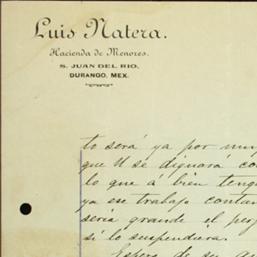 Luis Natera.
Hacienda de Menores.
S. JUAN DEL RIO,
DURANGO, MEX.
to será ya por
que U se dignará
lo que á bien
ya ese trabajo
seria grande el
si lo suspendiera.
Espero de su